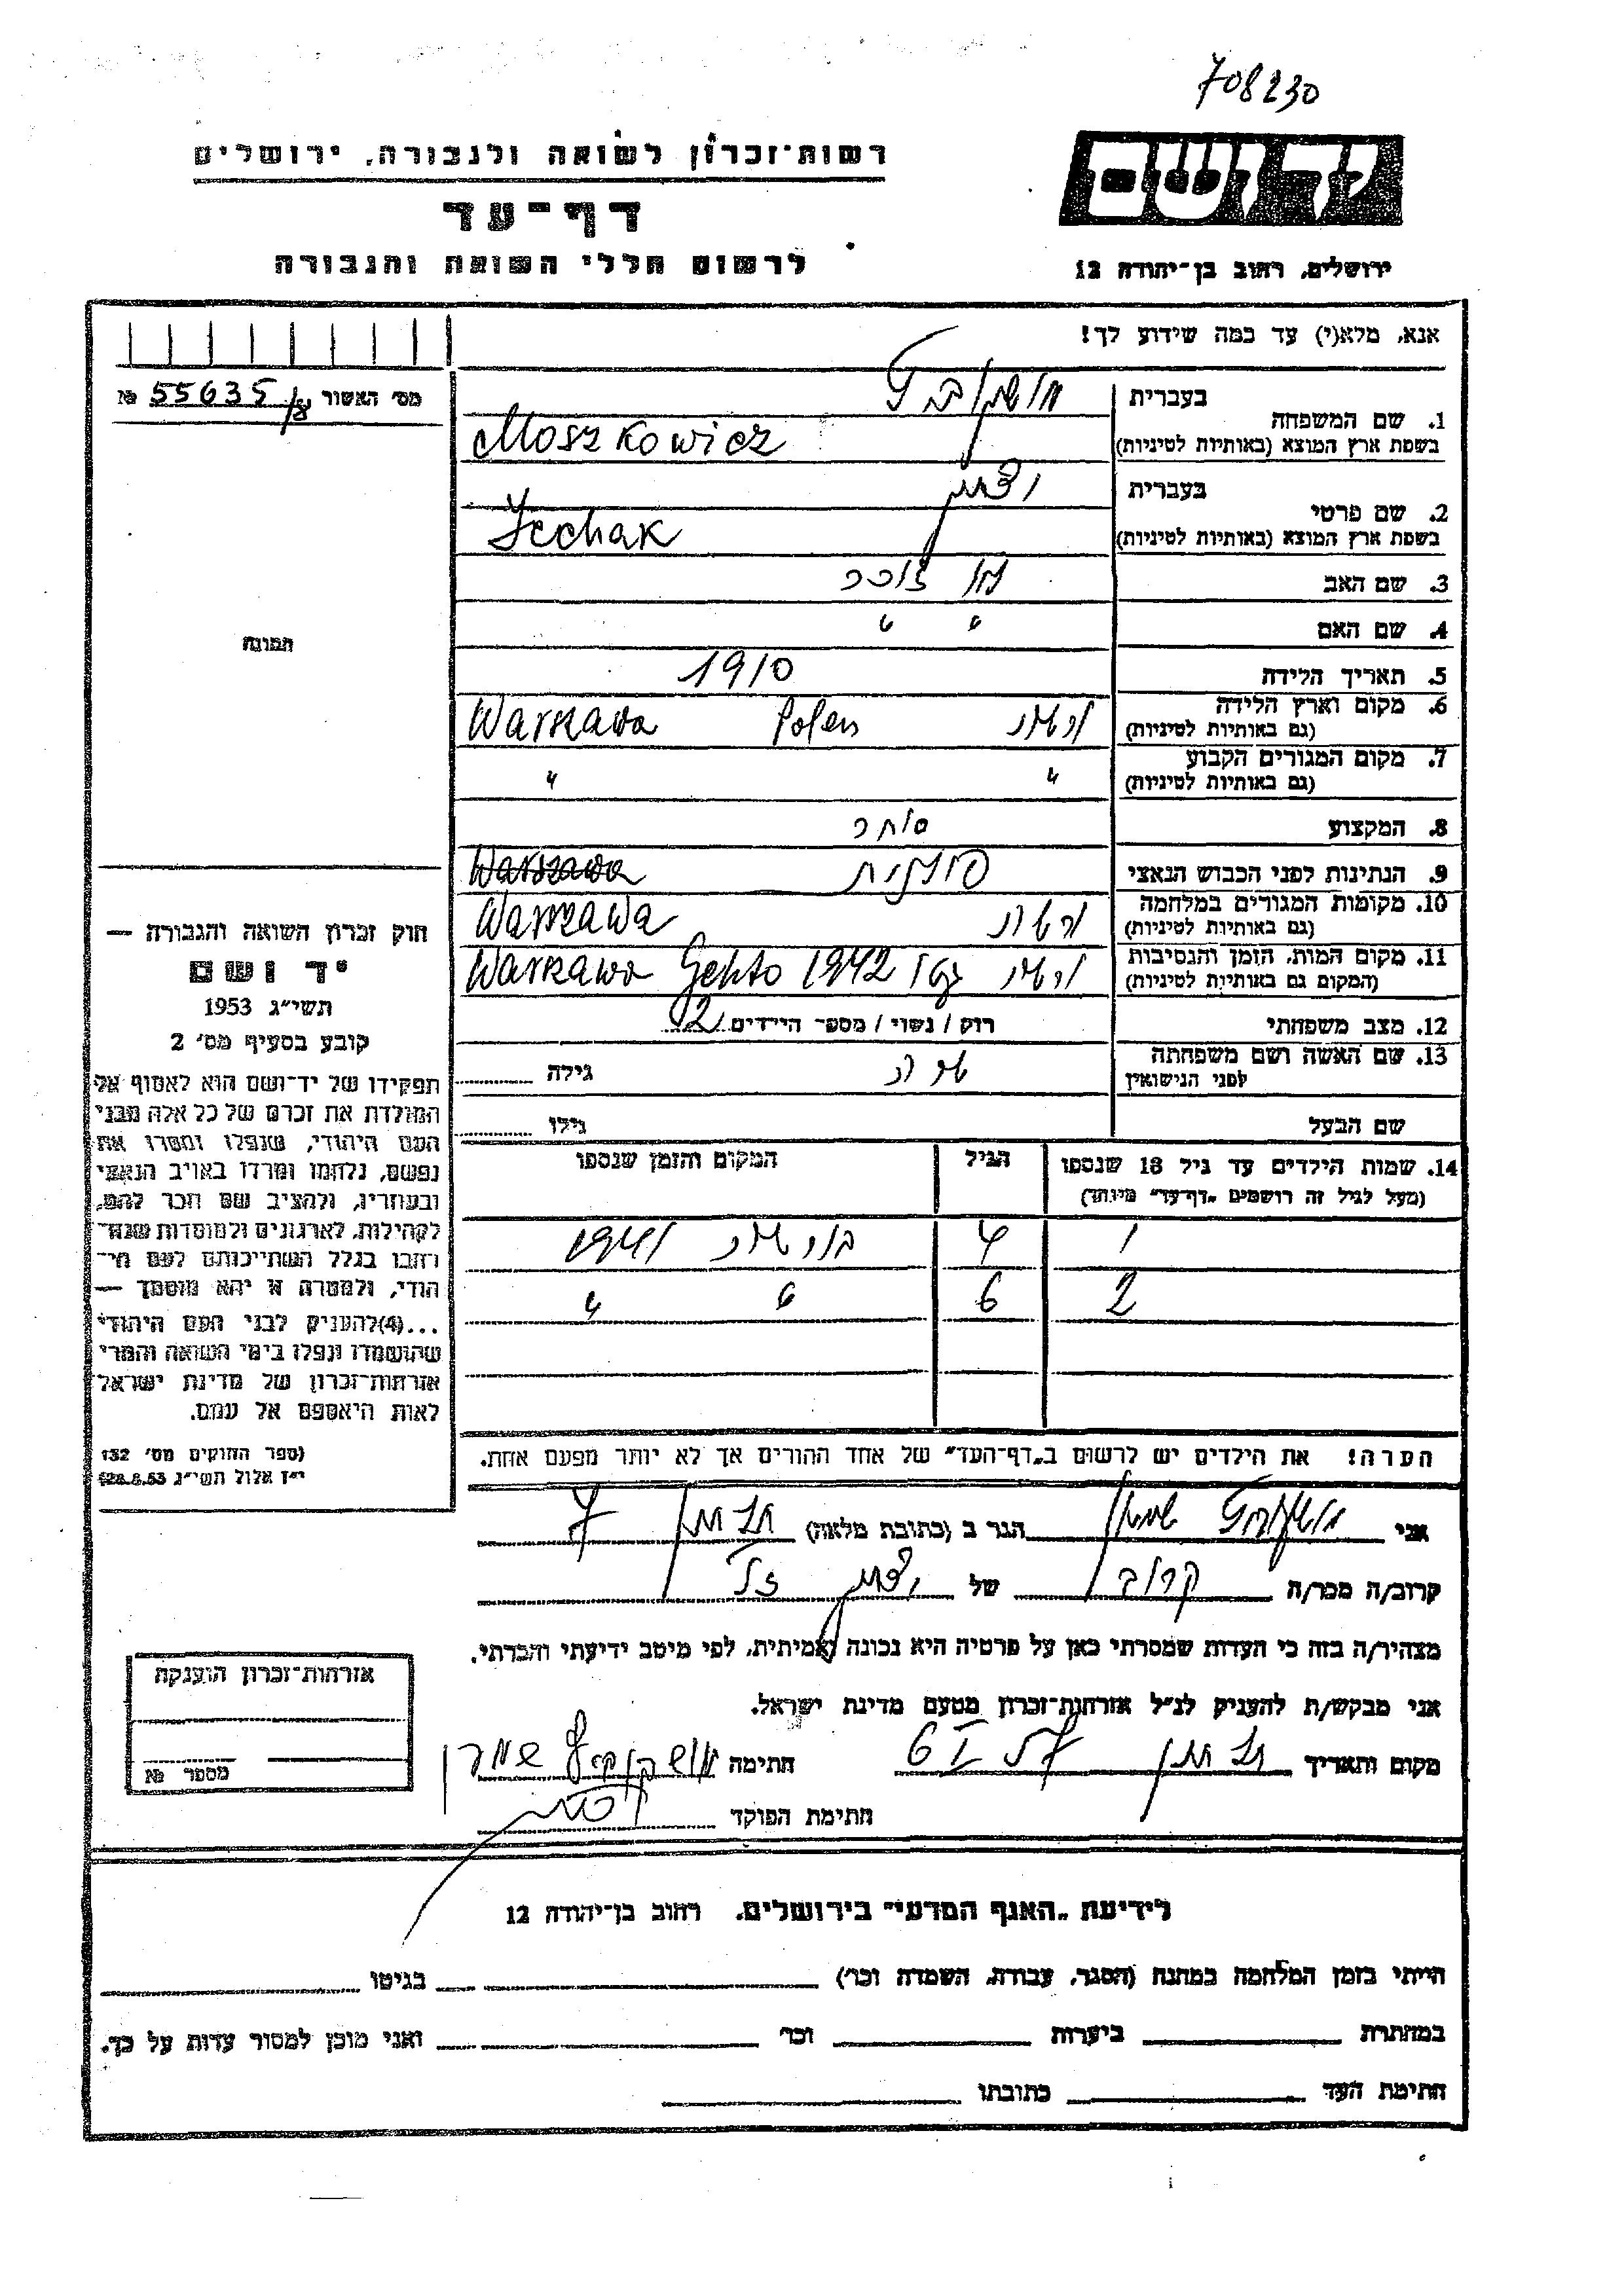 708230
יד ושם
רשות־זכרון לשואה ולגבורה, ירושלים
דף־עד
לרשום חללי השואה והגבורה
ירושלים, רחוב בן־יהודה 12
אנא, מלא(י) עד כמה שידוע לך!
מס׳ האשור № 55635
1. שם המשפחה
בעברית מושקוביץ
בשפת ארץ המוצא (באותיות לטיניות) Moszkowicz
2. שם פרטי
בעברית יצחק
בשפת ארץ המוצא (באותיות לטיניות) Icchak
3. שם האב לא זוכר
4. שם האם " "
תמונה
5. תאריך הלידה 1910
6. מקום וארץ הלידה
(גם באותיות לטיניות) ורשה Polen Warszawa
7. מקום המגורים הקבוע
(גם באותיות לטיניות) " "
8. המקצוע סוחר
9. הנתינות לפני הכבוש הנאצי פולנית Warszawa
10. מקומות המגורים במלחמה
(גם באותיות לטיניות) ורשה Warszawa
11. מקום המות, הזמן והנסיבות
(המקום גם באותיות לטיניות) ורשה גטו 1942 Warszawa Gehto
12. מצב משפחתי רוק / נשוי / מספר הילדים 2
13. שם האשה ושם משפחתה
לפני הנישואין שרה גילה
שם הבעל גילו
14. שמות הילדים עד גיל 18 שנספו הגיל המקום והזמן שנספו
(מעל לגיל זה רושמים "דף־עד" מיוחד)
1 4 בורשה 1941
2 6 " "
הערה! את הילדים יש לרשום ב"דף־העד" של אחד ההורים אך לא יותר מפעם אחת.
חוק זכרון השואה והגבורה —
יד ושם
תשי״ג 1953
קובע בסעיף מס׳ 2
תפקידו של יד־ושם הוא לאסוף אל
המולדת את זכרם של כל אלה מבני
העם היהודי, שנפלו ומסרו את
נפשם, נלחמו ומרדו באויב הנאצי
ובעוזריו, ולהציב שם וזכר להם,
לקהילות, לארגונים ולמוסדות שנח־
רבו בגלל השתייכותם לעם הי־
הודי, ולמטרה זו יהא מוסמך —
...(4) להעניק לבני העם היהודי
שהושמדו ונפלו בימי השואה והמרי
אזרחות־זכרון של מדינת ישראל
לאות היאספם אל עמם.
(ספר החוקים מס׳ 132
י״ז אלול תשי״ג 28.8.53)
אני מושקוביץ הגר ב (כתובת מלאה)
קרוב/ה מכר/ה קרוב של יצחק ז״ל
מצהיר/ה בזה כי העדות שמסרתי כאן על פרטיה היא נכונה ואמיתית, לפי מיטב ידיעתי והכרתי.
אני מבקש/ת להעניק לנ״ל אזרחות־זכרון מטעם מדינת ישראל.
מקום ותאריך 6 I 57 חתימה מושקוביץ
חתימת הפוקד
אזרחות־זכרון הוענקה
מספר №
לידיעת "האגף המדעי" בירושלים, רחוב בן־יהודה 12
הייתי בזמן המלחמה במחנה (הסגר, עבודה, השמדה וכו׳) בגיטו
במחתרת ביערות וכו׳ ואני מוכן למסור עדות על כך.
חתימת העד כתובתו